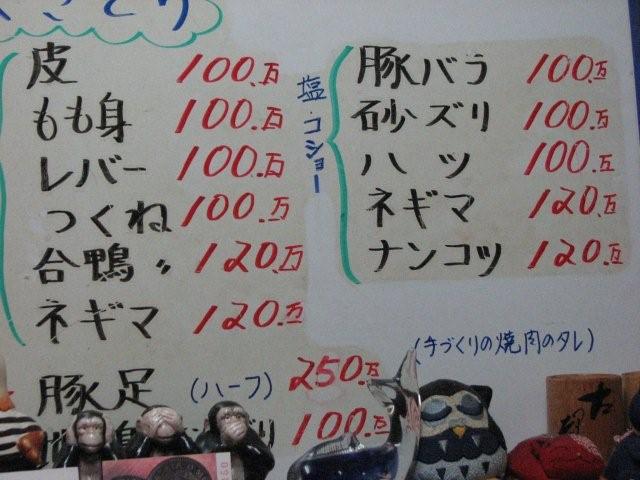 皮 100.万
もも身 100.万
レバー 100.万
つくね 100.万
合鴨〃 120.万
ネギマ 120.万
豚足 (ハーフ) 250.万
100.万
塩・コショー
豚バラ 100.万
砂ズリ 100.万
ハツ 100.万
ネギマ 120.万
ナンコツ 120.万
(手づくりの焼肉のタレ)